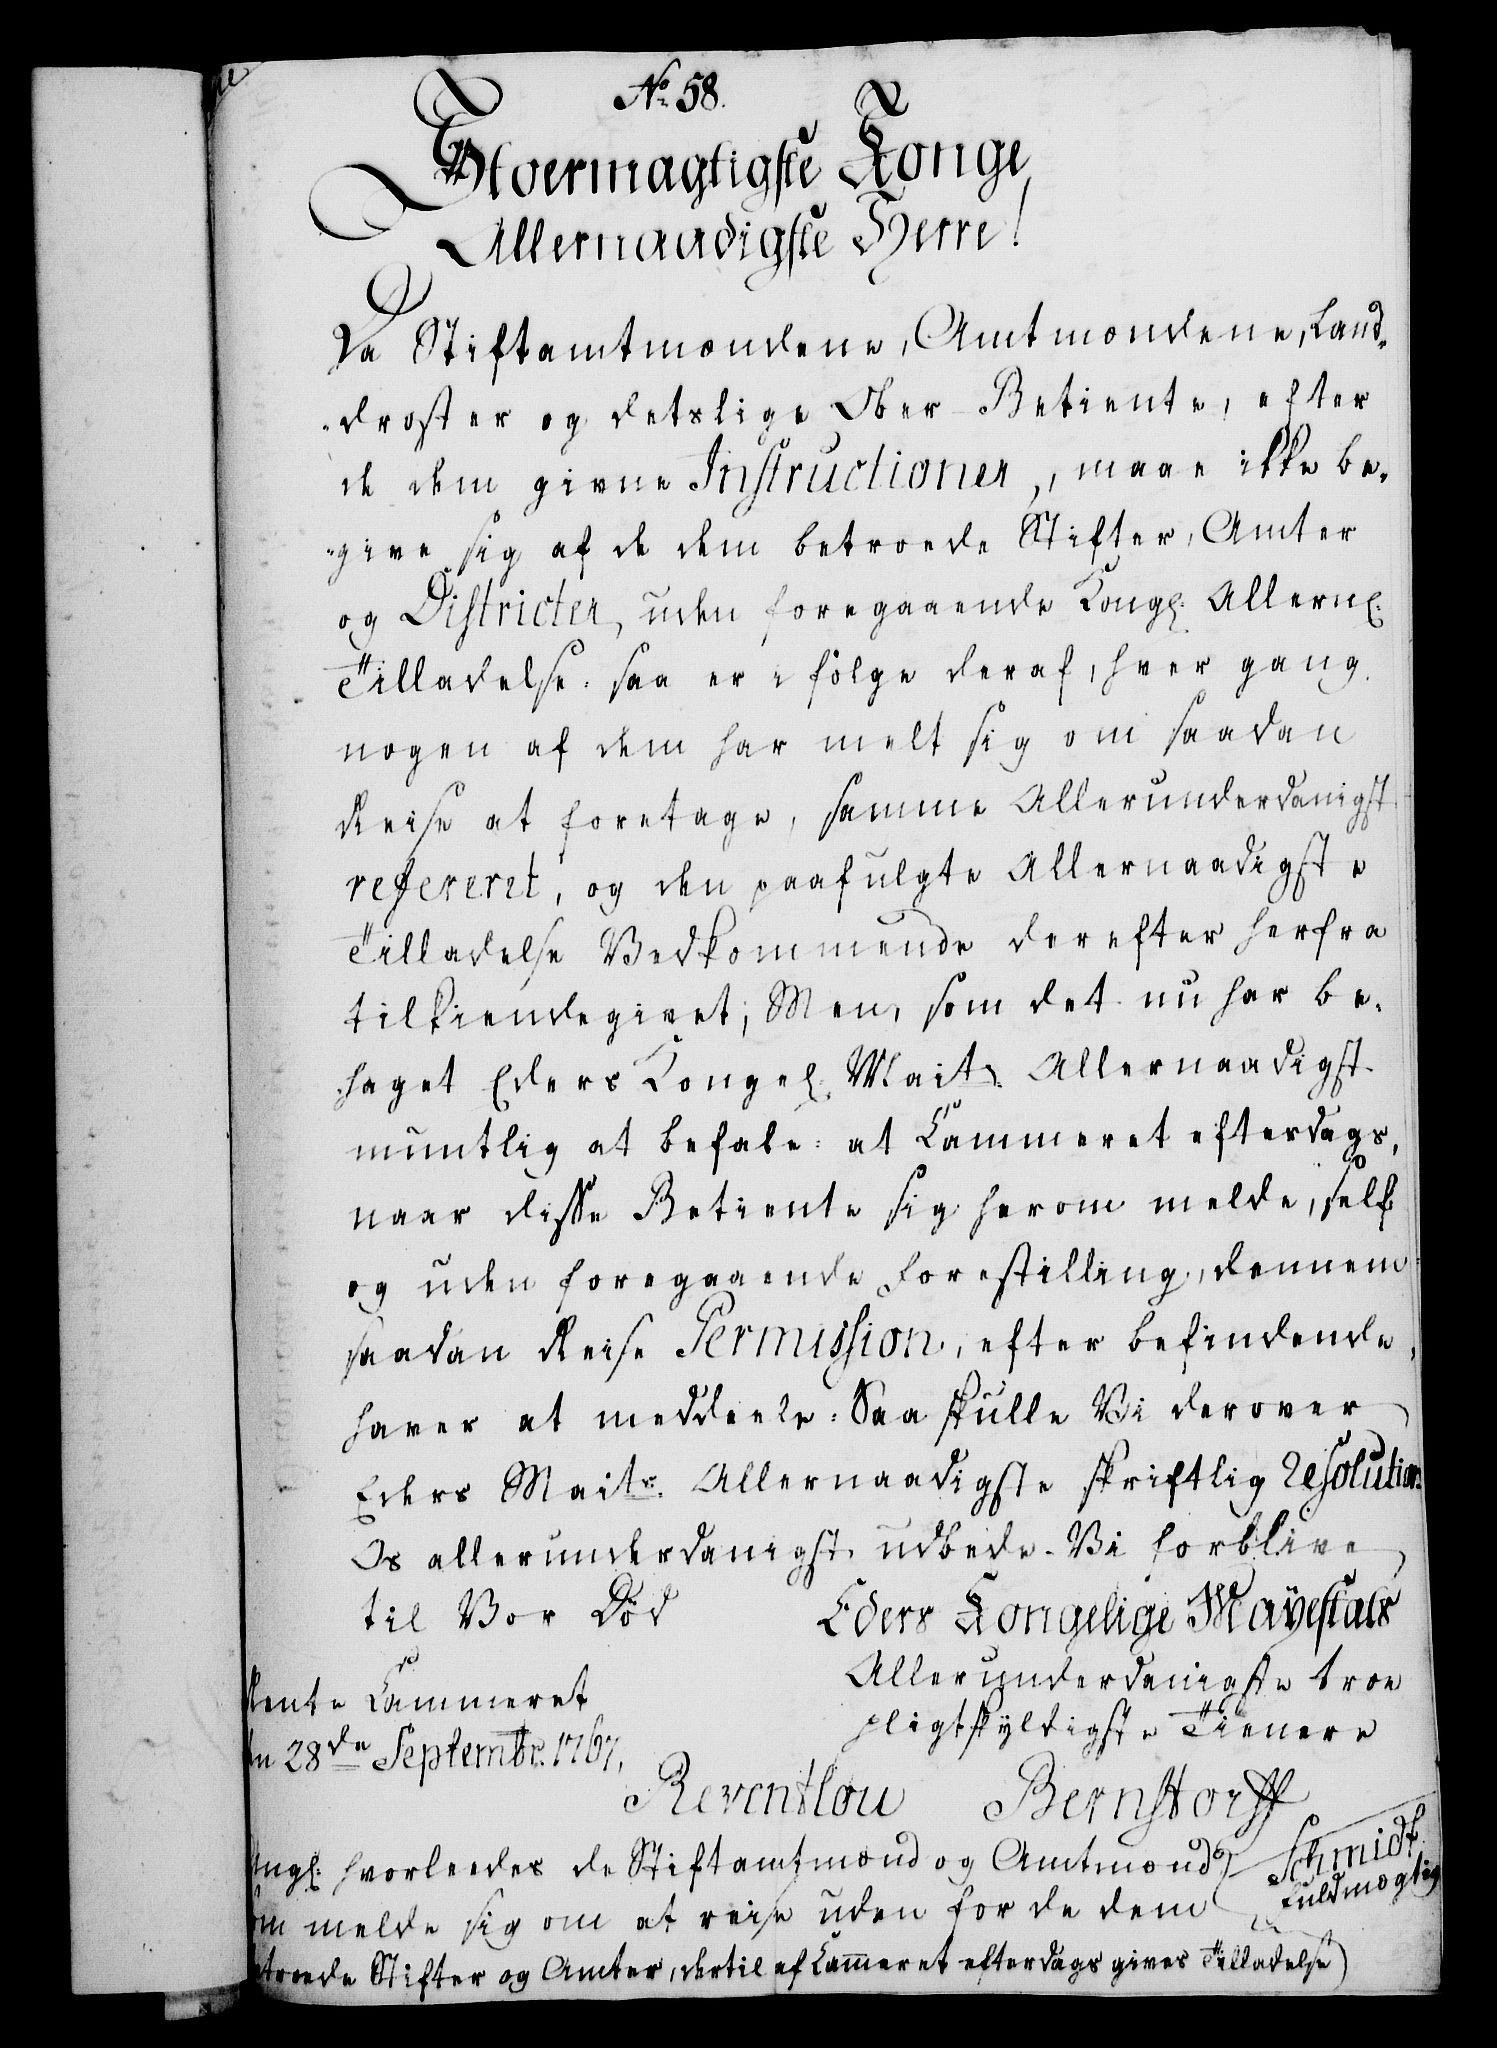 No. 58.
Stormægtigste Konge
Allernaadigste Herre!
Da Stiftamtmændene, Amtmændene, Land-
-droster og detslige Ober-Betiente, efter
de dem givne Instructioner, maae ikke be-
-give sig af de dem betroede Stifter, Amter
og Districter, uden foregaaende Kongl. Allern.
Tilladelse: saa er i følge deraf, hver gang
nogen af dem har melt sig om saadan
Reise at foretage, samme Allerunderdanigst
refereret, og den paafulgte Allernaadigste
Tilladelse Vedkommende derefter herfra
tilkiendegivet; Men, som det nu har be-
haget Eders Kongel. Maits. Allernaadigst
muntlig at befale: at Cammeret efterdags,
naar disse Betiente sig herom melde, self
og uden foregaaende Forestilling, dennem
saadan Reise Permission, efter befindende,
haver at meddeele: Saa skulle Vi derover
Eders Maits. Allernaadigste skriftlig Resolution
Os allerunderdanigst udbede. Vi forblive
til Vor Død
Eders Kongelige Mayestæts
Allerunderdanigste troe
pligtskyldigste Tienere
Rente Cammeret
den 28de Septembr. 1767.
Reventlou Bernstorff
Schmidt
Fuldmægtig
angl. hvorledes de Stiftamtmænd og Amtmænd
som melde sig om at reise uden for de dem
betroede Stifter og Amter, dertil af Cammeret efterdags gives Tilladelse)